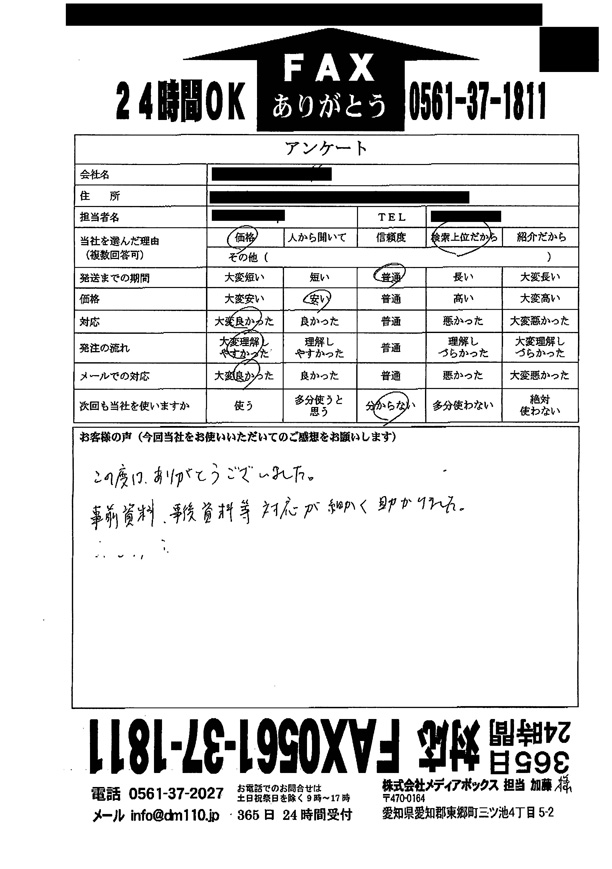 FAX
24時間OK ありがとう 0561-37-1811
アンケート
会社名
住 所
担当者名 TEL
当社を選んだ理由 価格 人から聞いて 信頼度 検索上位だから 紹介だから
(複数回答可) その他 ( )
発送までの期間 大変短い 短い 普通 長い 大変長い
価格 大変安い 安い 普通 高い 大変高い
対応 大変良かった 良かった 普通 悪かった 大変悪かった
発注の流れ 大変理解しやすかった 理解しやすかった 普通 理解しづらかった 大変理解しづらかった
メールでの対応 大変良かった 良かった 普通 悪かった 大変悪かった
次回も当社を使いますか 使う 多分使うと思う 分からない 多分使わない 絶対使わない
お客様の声(今回当社をお使いいただいてのご感想をお願いします)
この度は、ありがとうございました。
事前資料、事後資料等 対応が細かく助かりました。
365日24時間対応 FAX0561-37-1811
電話 0561-37-2027 お電話でのお問合せは
土日祝祭日を除く9時~17時
メール info@dm110.jp 365日 24時間受付
株式会社メディアボックス 担当 加藤 様
〒470-0164
愛知県愛知郡東郷町三ツ池4丁目5-2